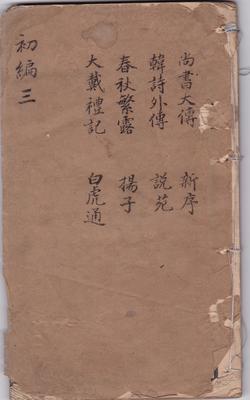 尚書大傳 新序
韓詩外傳 説苑
春秋繁露 揚子
大戴禮記 白虎通
初編三